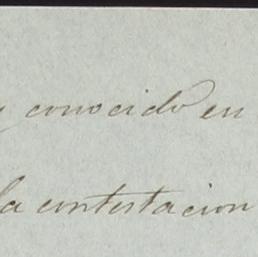 conocido en
la contestacion